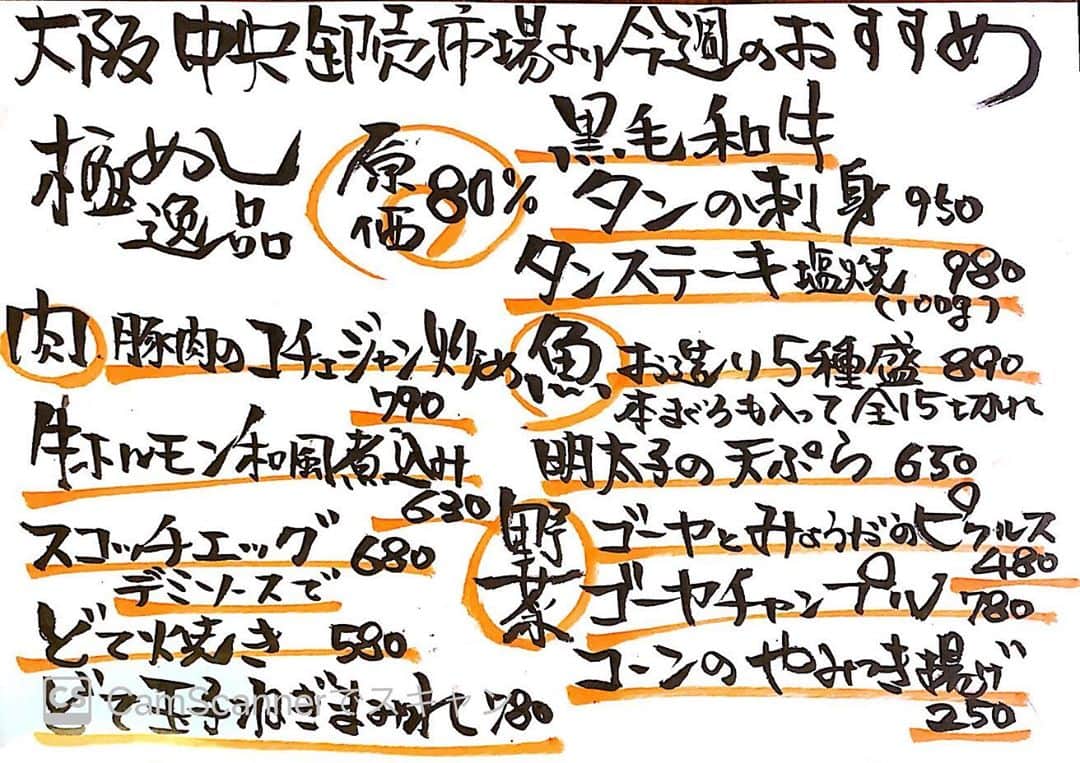 大阪中央卸売市場より今週のおすすめ
極めし
逸品
原価80%
黒毛和牛
タンの刺身 950
タンステーキ塩焼 980
(100g)
肉
豚肉のコチュジャン炒め
790
牛ホルモン和風煮込み
630
スコッチエッグ 680
デミソースで
どて焼き 580
どて玉子ねぎまみれ 780
魚
お造り5種盛 890
本まぐろも入って全15切れ
明太子の天ぷら 650
野菜
ゴーヤとみょうがのピクルス
480
ゴーヤチャンプル 780
コーンのやみつき揚げ
250
CS CamScannerでスキャン